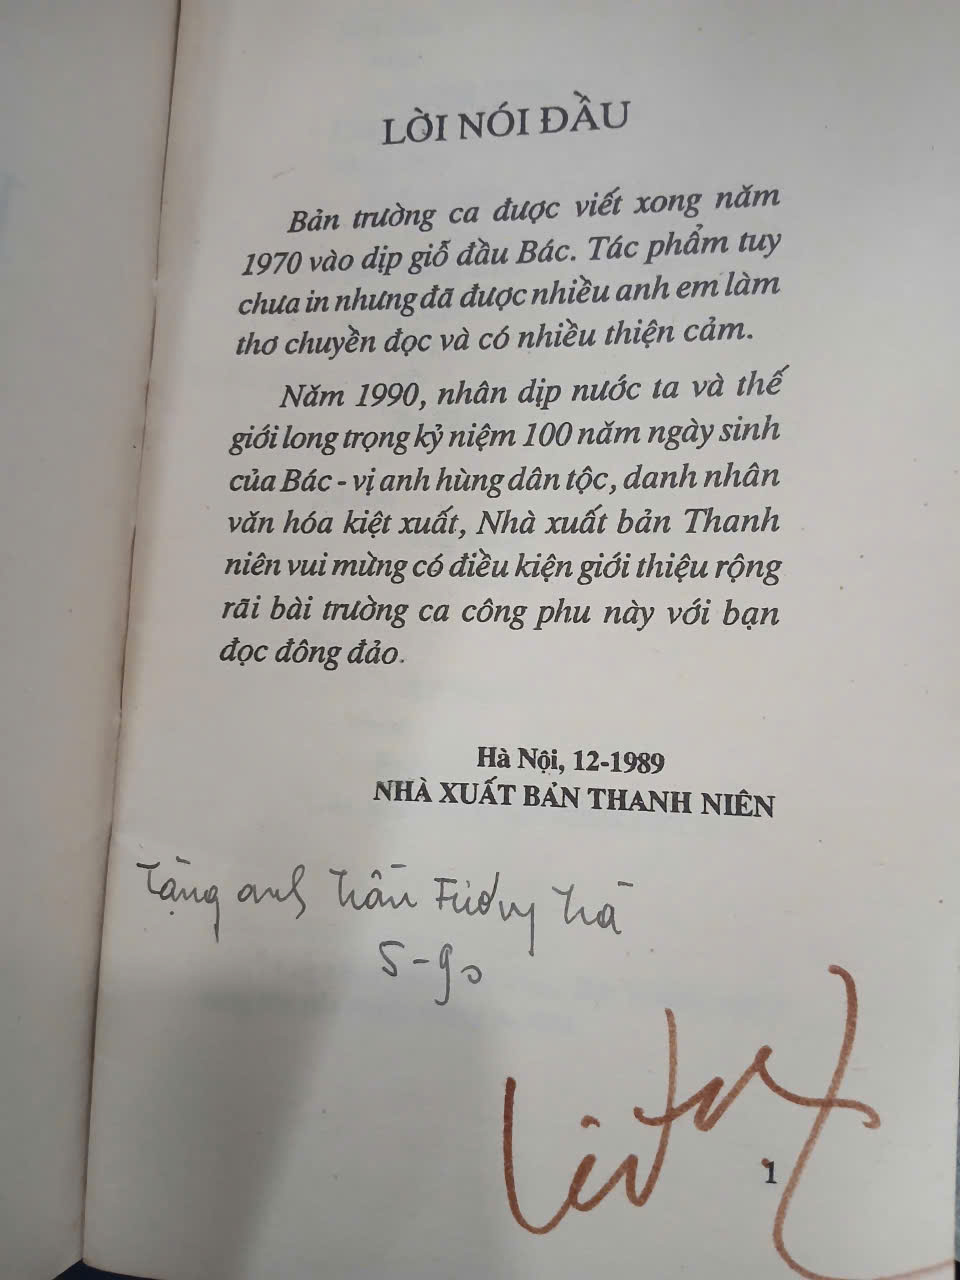 LỜI NÓI ĐẦU
Bản trường ca được viết xong năm
1970 vào dịp giỗ đầu Bác. Tác phẩm tuy
chưa in nhưng đã được nhiều anh em làm
thơ chuyền đọc và có nhiều thiện cảm.
Năm 1990, nhân dịp nước ta và thế
giới long trọng kỷ niệm 100 năm ngày sinh
của Bác - vị anh hùng dân tộc, danh nhân
văn hóa kiệt xuất, Nhà xuất bản Thanh
niên vui mừng có điều kiện giới thiệu rộng
rãi bài trường ca công phu này với bạn
đọc đông đảo.
Hà Nội, 12-1989
NHÀ XUẤT BẢN THANH NIÊN
Tặng anh Trần Phương Trà
5-90
1